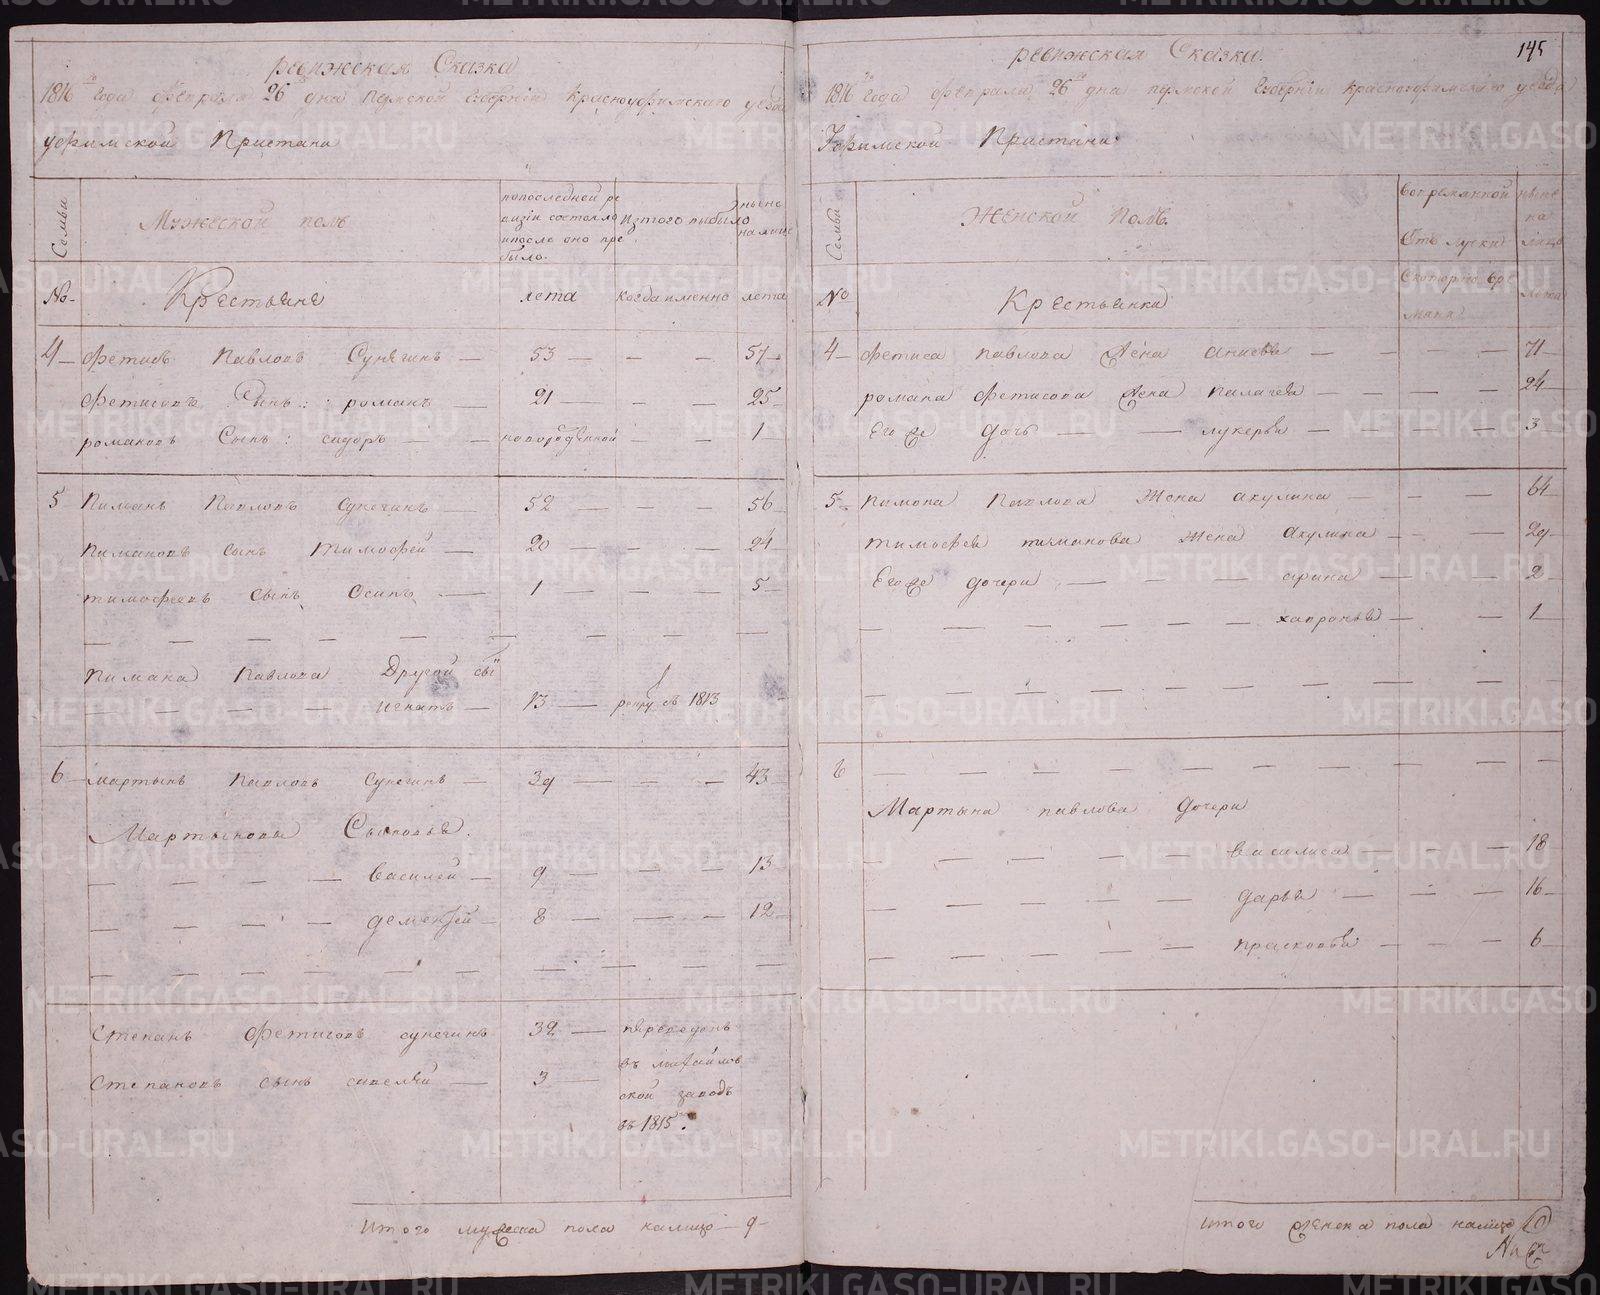 ревижская Сказка
1816го года февраля 26 дня пермской губернии красноуфимскаго уезда
уфимской Пристани
Семьи
Мужеской полъ
попоследней ре
визiи состояло
ипосле оно при
было.
Изтого выбыло
ныне
налице
No
Крестьяне
лета
когда именно
лета
4 фетисъ Павловъ Сунегинъ — 53 — — — 57
фетисовъ Сынъ: романъ — 21 — — — 25
романовъ Сынъ: сидоръ — — новорожденной — — 1
5 Пиманъ Павловъ сунегинъ — 52 — — — 56
Пимановъ сынъ тимофей — 20 — — — 24
тимофеевъ сынъ осипъ — 1 — — — 5
Пимана Павлова Другой сынъ
игнатъ — 13 — рекру. въ 1813
6 мартынъ Павловъ сунегинъ — 39 — — — 43
Мартынова Сыновья.
василей — 9 — — — 13
дементей — 8 — — — 12
степанъ фетисовъ сунегинъ 32 — переведенъ
степановъ сынъ савелей — 3 — въ михайлов
ской заводъ
въ 1815.
Итого мужеска пола налицо — 9
145
ревижская Сказка.
1816го года февраля 26 дня пермской губернии красноуфимскаго уезда
Уфимской Пристани
Семьи
Женской Полъ.
вовременной
отлучки
ныне
на
лицо
No
Крестьянки
Скоторого вре
мяни
лета
4 фетиса павлова жена — — 71
романа фетисова жена — — — 24
Его же дочь — — лукерья — — — — 3
5 пимона павлова жена акулина — — — 64
тимофея пиманова жена акулина — — — 29
Его же дочери — — — арина — — — 2
— — — — — — — — 1
6
Мартына павлова дочери
василиса — — — 18
дарья — — — 16
Прасковья — — — 6
итого женска пола налицо 10